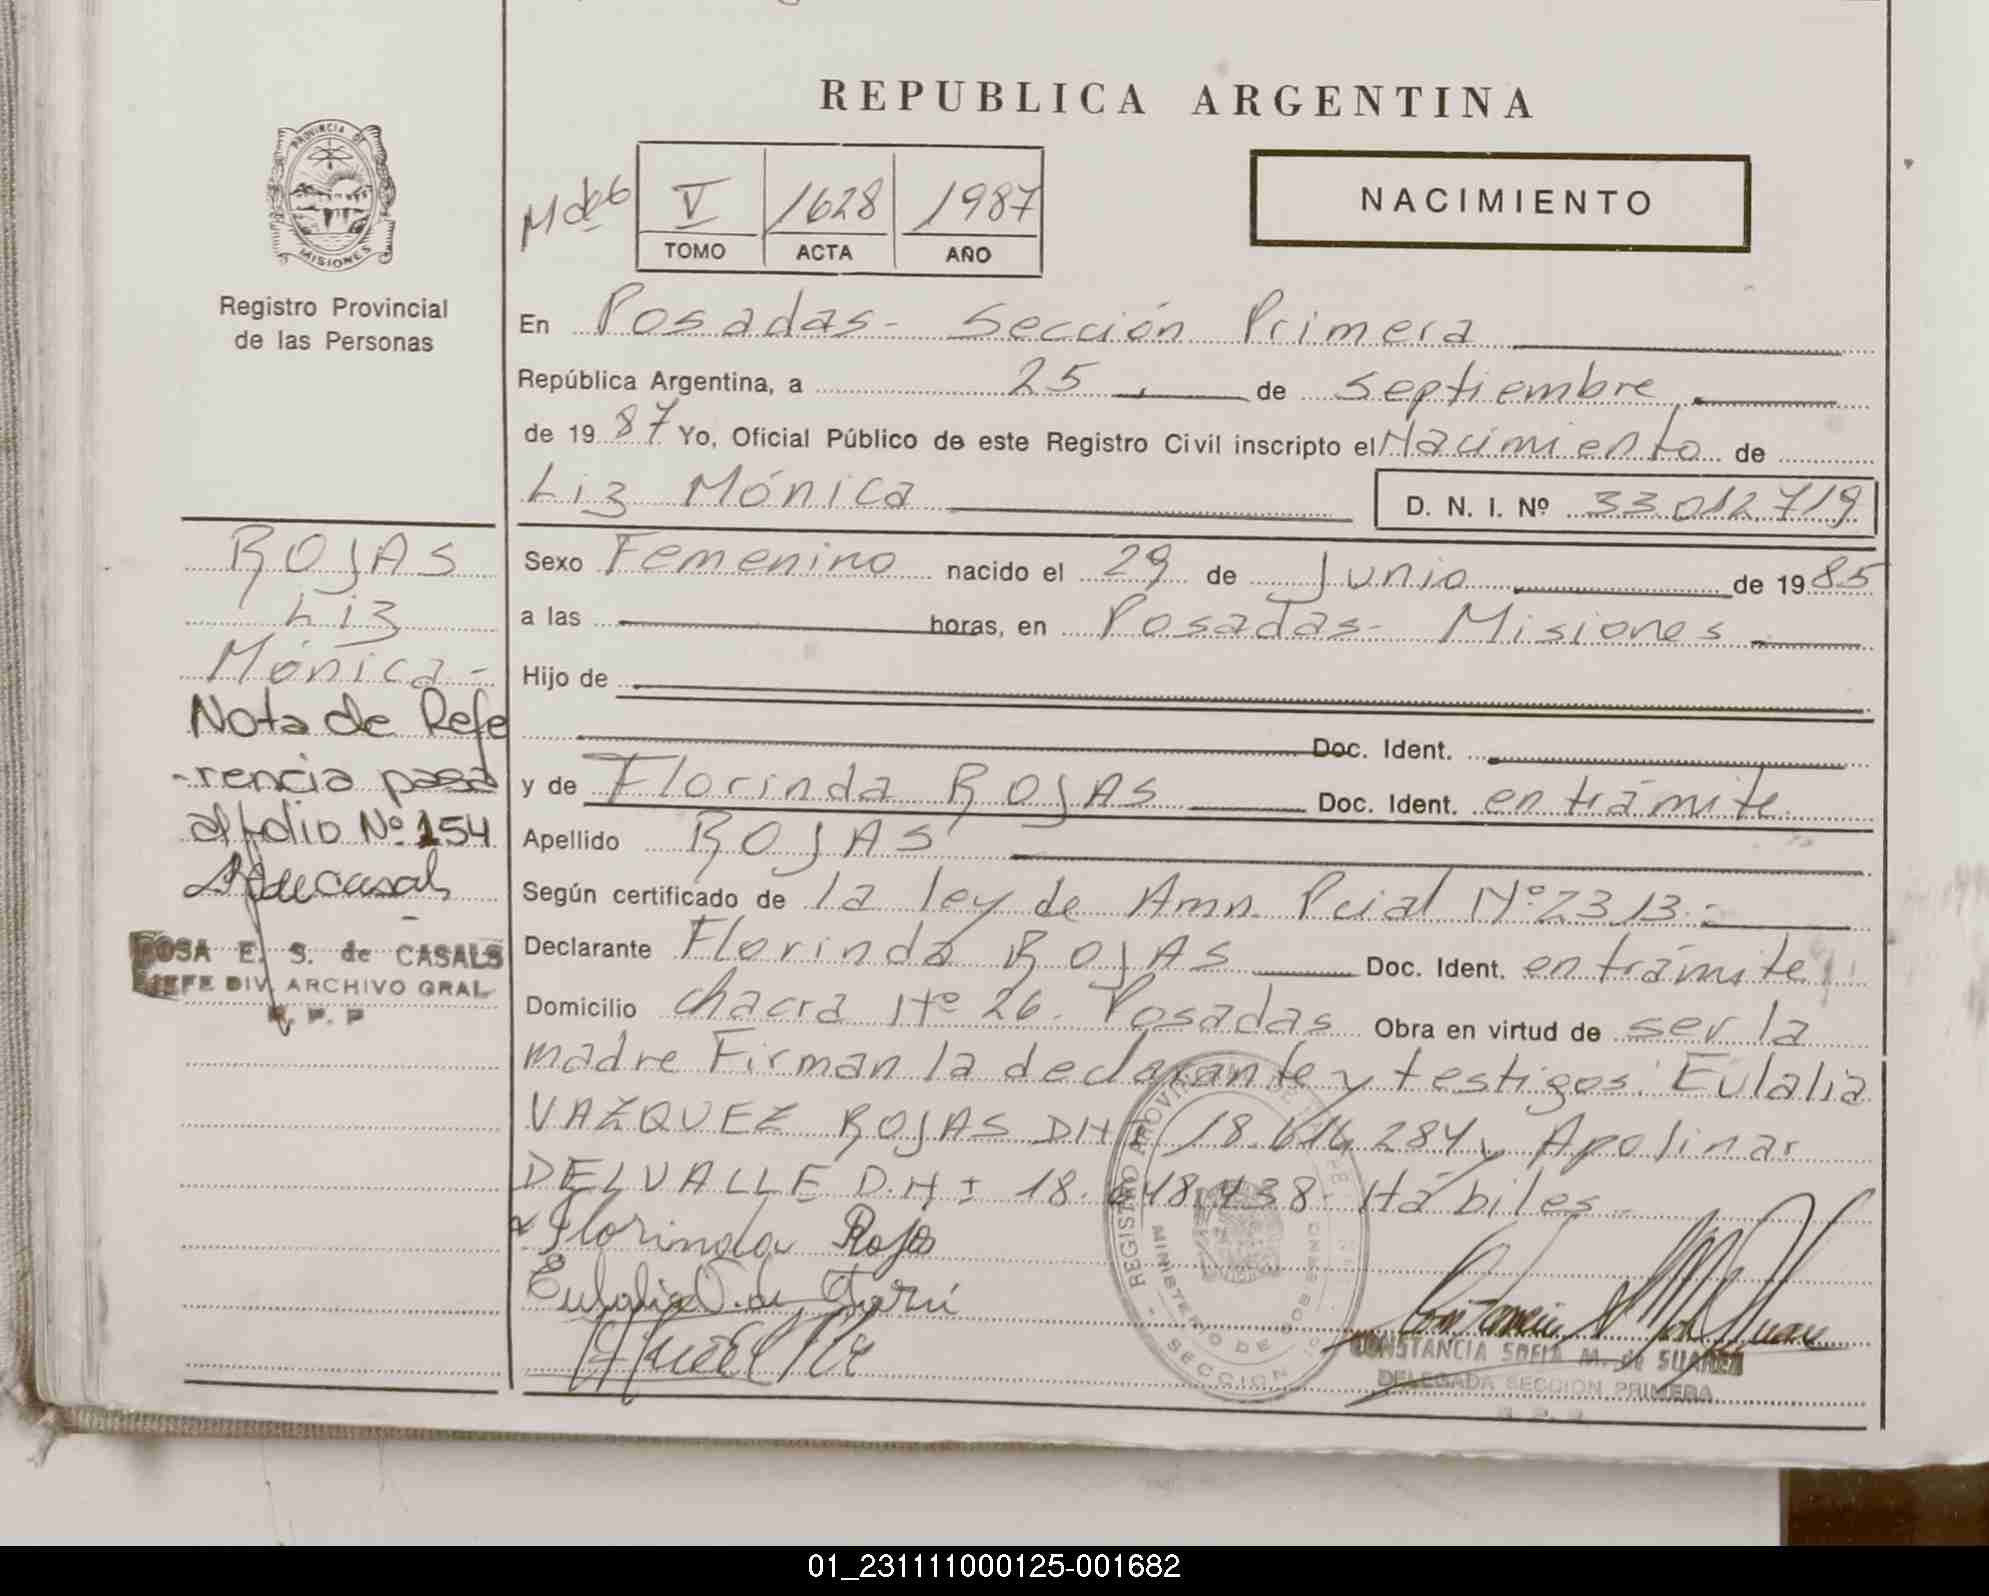 REPUBLICA ARGENTINA
PROVINCIA DE
MISIONES
Registro Provincial
de las Personas
V 1628 1987
TOMO ACTA AÑO
NACIMIENTO
En Posadas- Sección Primera
República Argentina, a 25 de Septiembre
de 19 87 Yo, Oficial Público de este Registro Civil inscripto el Nacimiento de
Liz Mónica D. N. I. Nº 33.012.719
Sexo Femenino nacido el 29 de Junio de 19 85
a las horas, en Posadas- Misiones
Hijo de
Doc. Ident.
y de Florinda ROJAS Doc. Ident. en trámite
Apellido ROJAS
Según certificado de la ley de Amn. Pcial Nº 2313.-
Declarante Florinda ROJAS Doc. Ident. en trámite
Domicilio chacra Nº 26. Posadas Obra en virtud de ser la
madre Firman la declarante y testigos: Eulalia
VAZQUEZ ROJAS DNI 18.614.284 y Apolinar
DELVALLE D.N.I 18.648.438. Hábiles.-
Florinda Rojas
ROJAS
Liz
Mónica-
Nota de Refe
-rencia pasa
al folio Nº 154
ROSA E. S. de CASALS
JEFE DIV. ARCHIVO GRAL
R. P. P
REGISTRO PROVINCIAL DE
MINISTERIO DE GOBIERNO
SECCION
CONSTANCIA SOFIA M. de SUAREZ
DELEGADA SECCION PRIMERA
01_231111000125-001682